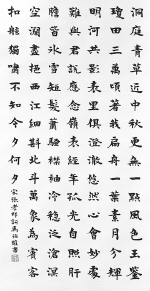 洞庭青草近中秋更無一點風色玉鑒
瓊田三萬頃著我扁舟一葉素月分輝
明河共影表裏俱澄澈悠然心會妙處
難與君說應念嶺經年孤光自照肝
膽皆冰雪短髮蕭騷襟袖冷穩泛滄
空闊盡挹西江細斟北斗萬象為賓客
扣舷獨嘯不知今夕何夕
宋張孝祥詞